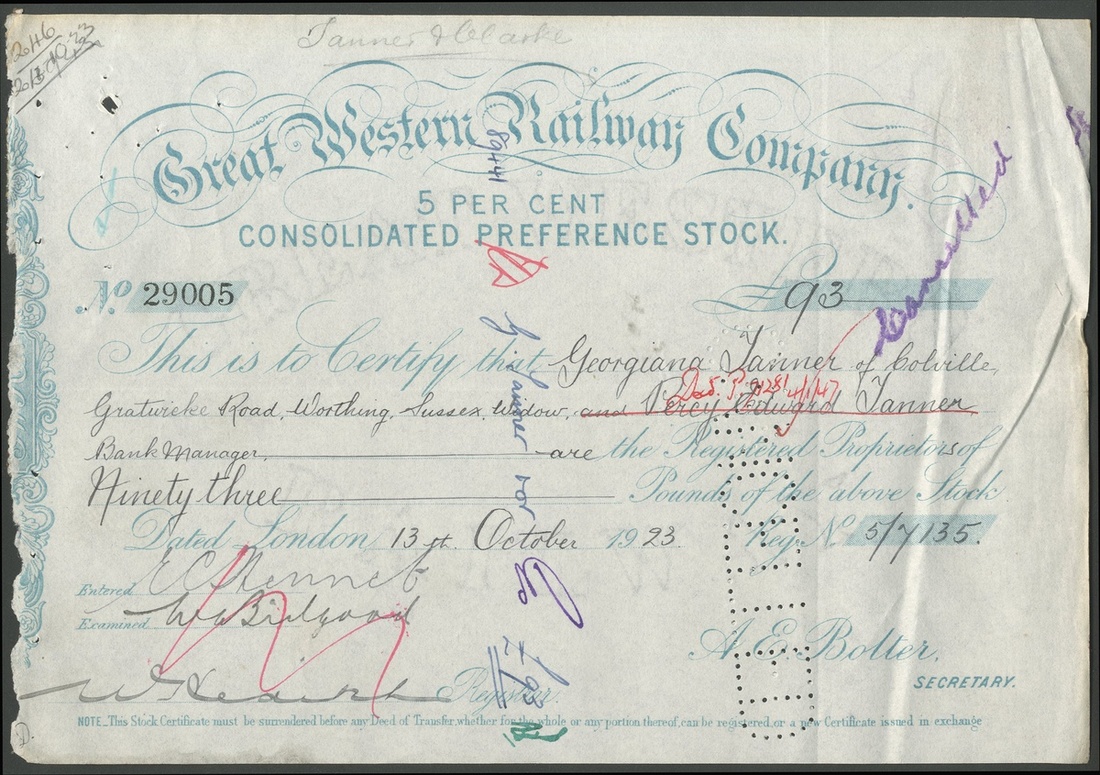 2046
Tanner & Clarke
Great Western Railway Company.
5 PER CENT
CONSOLIDATED PREFERENCE STOCK.
89441
Cancelled
No 29005 £93
This is to Certify that Georgiana Tanner of Colville,
Dec'd. P. 4/1/47
Gratwicke Road, Worthing, Sussex, Widow, and Percy Edward Tanner
Bank Manager, are the Registered Proprietors of
Ninety three Pounds of the above Stock.
Dated London 13th October 1923. Reg. No. 5/7135.
G Tanner
£93
Entered E C Kennet
Examined W Bidgood
Registrar.
A. E. Bolter.
SECRETARY.
CANCELLED
NOTE.—This Stock Certificate must be surrendered before any Deed of Transfer, whether for the whole or any portion thereof, can be registered, or a new Certificate issued in exchange